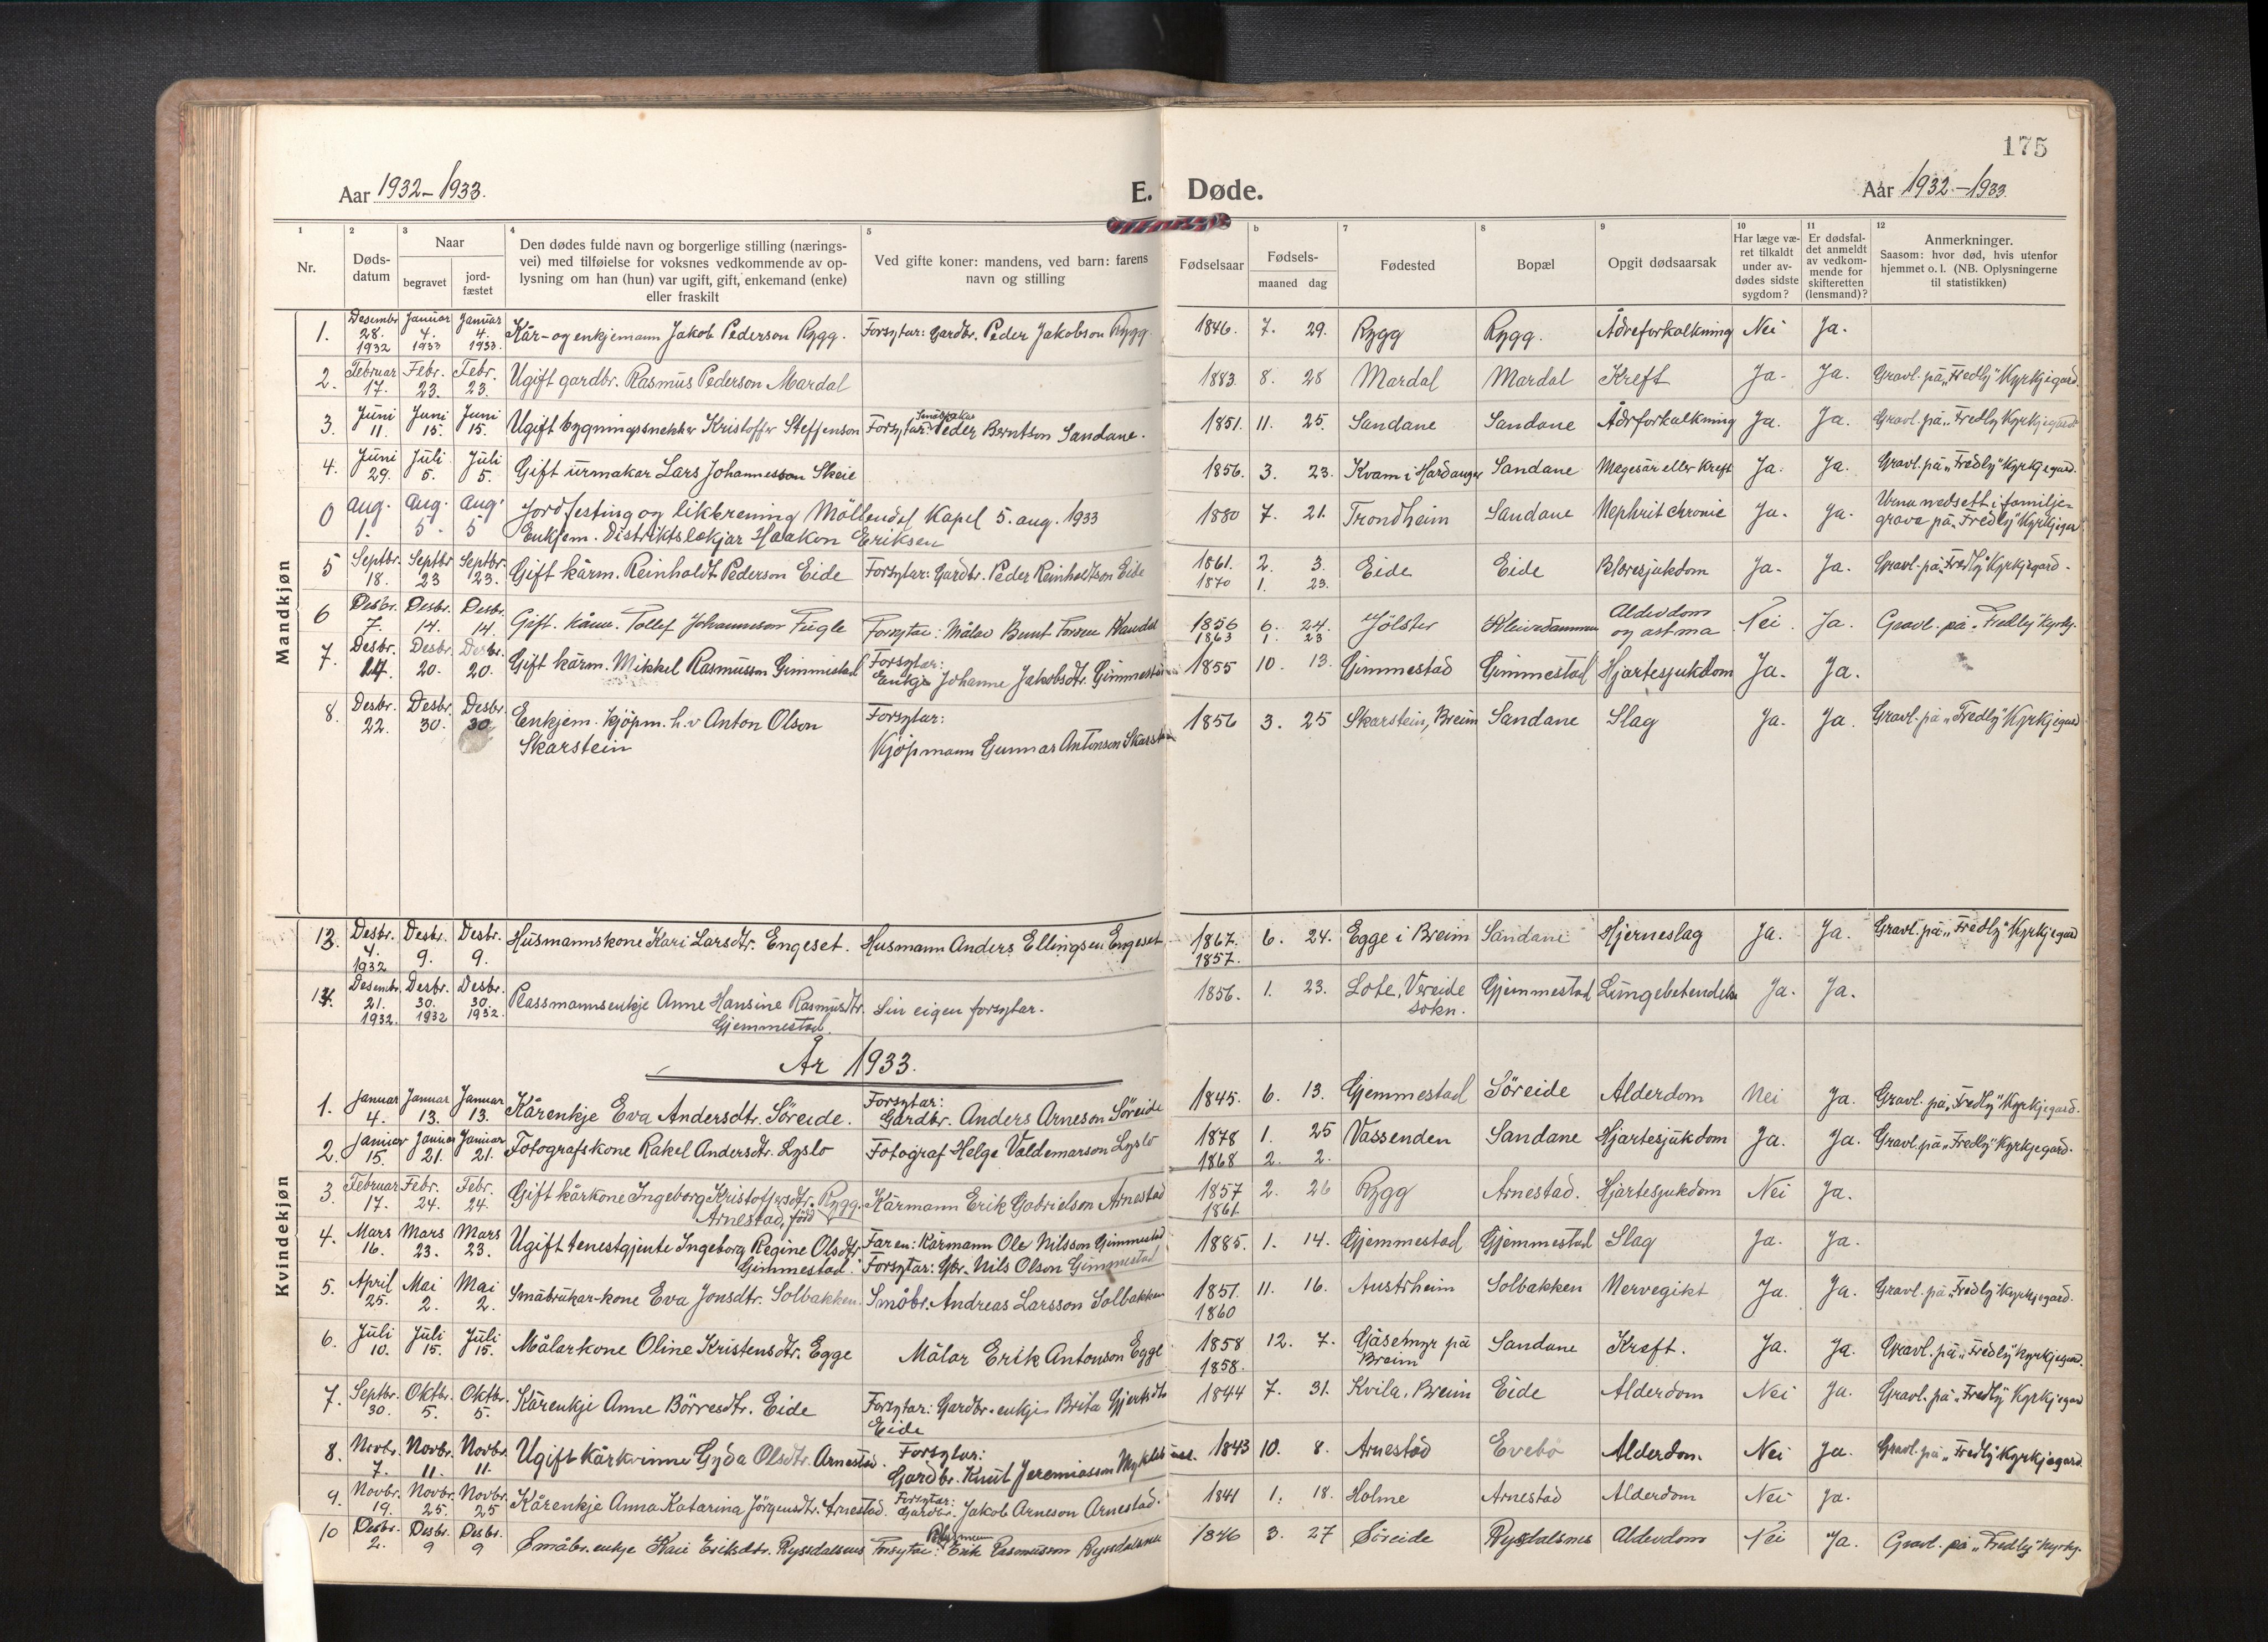 175
Aar 1932-1933.
E. Døde.
Aar 1932.-1933.
1 Nr.
2 Døds-datum
3 Naar begravet jord-fæstet
4 Den dødes fulde navn og borgerlige stilling (nærings-vei) med tilføielse for voksnes vedkommende av op-lysning om han (hun) var ugift, gift, enkemand (enke) eller fraskilt
5 Ved gifte koner: mandens, ved barn: farens navn og stilling
6 Fødselsaar Fødsels- maaned dag
7 Fødested
8 Bopæl
9 Opgit dødsaarsak
10 Har læge væ-ret tilkaldt under av-dødes sidste sygdom?
11 Er dødsfal-det anmeldt av vedkom-mende for skifteretten (lensmand)?
12 Anmerkninger. Saasom: hvor død, hvis utenfor hjemmet o. l. (NB. Oplysningerne til statistikken)
Mandkjøn
1. Desembr 28. 1932 Januar 4. 1933 Januar 4. 1933. Kår- og enkjemann Jakob Pederson Rygg. Forsytar: Gardbr. Peder Jakobson Rygg. 1846. 7. 29. Rygg Rygg. Ådreforkalkning Nei Ja.
2. Februar 17. Febr. 23. Febr. 23. Ugift gardbr. Rasmus Pederson Mardal 1883. 8. 28 Mardal Mardal Kreft Ja. Ja. Gravl. på „Fredly" Kyrkjegard.
3. Juni 11. Juni 15. Juni 15. Ugift bygningssnekker Kristoffer Steffenson Forsytar: Peder Berntson Sandane. 1851. 11. 25. Sandane Sandane Ådrforkalkning Ja. Ja. Gravl. på „Fredly" Kyrkjegard
4. Juni 29. Juli 5. Juli 5. Gift urmakar Lars Johannesson Skeie 1856. 3. 23. Kvam i Hardanger Sandane Magesår eller Kreft Ja. Ja. Gravl. på „Fredly" Kyrkjegard.
0 Aug. 1. Aug. 5 Aug. 5 Jordfesting og likbrening Möllendal Kapel 5. aug. 1933
Enkjem. Distriktslækjar Haakon Eriksen 1880 7. 21. Trondheim Sandane Nephrit chronic Ja. Ja. Urna nedsett i familje-grava på „Fredly" Kyrkjegar
5 Septbr. 18. Septbr 23 Septbr. 23. Gift kårm. Reinholdt Pederson Eide Forsytar: Gardbr. Peder Reinholtson Eide 1861. 2. 3. Eide Eide Blæresjukdom Ja. Ja. Gravl. på „Fredly" Kyrkjegard.
1870 1. 23.
6 Desbr. 7. Desbr. 14. Desbr. 14. Gift. kårm. Tollef Johanneson Fugle Forsytar: Målar Bernt 1856 6. 24. Jölster Aldersdom og astma Nei Ja. Gravl. på „Fredly" Kyrkj.
1863 1. 23
7. Desbr. 14. Desbr. 20. Desbr. 20. Gift kårm. Mikkel Rasmusson Gimmestad Forsytar: Enkje Johanne Jakobsdtr. Gimmestad 1855 10. 13. Gimmestad Gimmestad Hjartesjukdom Ja. Ja.
8. Desbr. 22. Desbr. 30. Desbr. 30 Enkjem. kjöpm. h.v Anton Olson Skarstein Forsytar: Kjöpmann Gunnar Antonson Skarstein 1856 3. 25 Skarstein, Breim Sandane Slag Ja. Ja. Gravl. på „Fredly" Kyrkjegard
Kvindekjøn
13. Desbr. 4. 1932 Desbr. 9. Desbr. 9. Husmannskone Kari Larsdtr. Engeset. Husmann Anders Ellingsen Engeset 1867. 6. 24. Egge i Breim Sandane Hjerneslag Ja. Ja. Gravl. på „Fredly" Kyrkjegard
1857.
14. Desembr. 21. 1932. Desbr. 30. 1932 Desbr. 30. 1932. Plassmannsenkje Anne Hansine Rasmusdtr. Gjemmestad. Sin eigen forsytar. 1856. 1. 23. Lote, Vereide sokn. Gjemmestad Lungebetendelse Ja. Ja.
År 1933.
1. Januar 4. Januar 13. Januar 13. Kårenkje Eva Andersdtr. Söreide. Forsytar: Gardbr. Anders Arneson Söreide 1845. 6. 13. Gjemmestad Söreide Alderdom Nei Ja. Gravl. på „Fredly" Kyrkjegard.
2. Januar 15. Januar 21. Januar 21. Fotografskone Rakel Andersdtr. Lyslo Fotograf Helge Valdemarson Lyslo 1878 1. 25 Vassenden Sandane Hjartesjukdom Ja. Ja. Gravl. på „Fredly" Kyrkjegard.
1868 2. 2.
3. Februar 17. Febr. 24. Febr. 24. Gift kårkone Ingeborg Kristoffersdtr. Rygg. Arnestad, född Kårmann Erik Gabrielson Arnestad 1857 2. 26 Rygg Arnestad. Hjartesjukdom Nei Ja.
1861.
4. Mars 16. Mars 23. Mars 23. Ugift tenestgjente Ingeborg Regine Olsdtr. Gimmestad. Faren: Kårmann Ole Nilsson Gimmestad Forsytar: Gbr. Nils Olson Gimmestad 1885. 1. 14. Gjemmestad Gjemmestad Slag Ja. Ja.
5. April 25. Mai 2. Mai 2. Småbrukar-kone Eva Jonsdtr. Solbakken. Småbr. Andreas Larsson Solbakken 1857. 11. 16. Austrheim Solbakken Nervegikt Ja. Ja. Gravl. på „Fredly" Kyrkjegard.
1860
6. Juli 10. Juli 15. Juli 15. Målarkone Oline Kristensdtr. Egge Målar Erik Antonson Egge 1858 12. 7. Gåsemyr på Breim Sandane Kreft. Ja. Ja. Gravl. på „Fredly" Kyrkjegard.
1858.
7. Septbr. 30. Oktbr. 5. Oktbr. 5. Kårenkje Anne Börresdtr. Eide Forsytar: Gardbr. enkje Brita Gjertsdtr Eide 1844 7. 31. Kvila, Breim Eide Alderdom Nei Ja. Gravl. på „Fredly" Kyrkjegar
8. Novbr. 7. Novbr. 11. Novbr. 11. Ugift kårkvinne Gyda Olsdtr. Arnestad. Forsytar: Gardbr. Knut Jeremiasson 1843 10. 8. Arnestad Evebö Alderdom. Nei Ja. Gravl. på „Fredly" Kyrkjegard
9. Novbr. 19. Novbr. 25. Novbr. 25 Kårenkje Anna Katarina Jörgensdtr. Arnestad. Forsytar: Gardbr. Jakob Arneson Arnestad. 1841 1. 18. Holme Arnestad Alderdom Nei Ja.
10 Desbr. 2. Desbr. 9 Desbr. 9 Småbr. enkje Kari Eriksdtr. Ryssdalsnes Forsytar: Erik Rasmusson Ryssdalsnes 1846 3. 27 Söreide Rysdalsnes Alderdom Nei Ja. Gravl. på „Fredly" Kyrkj.